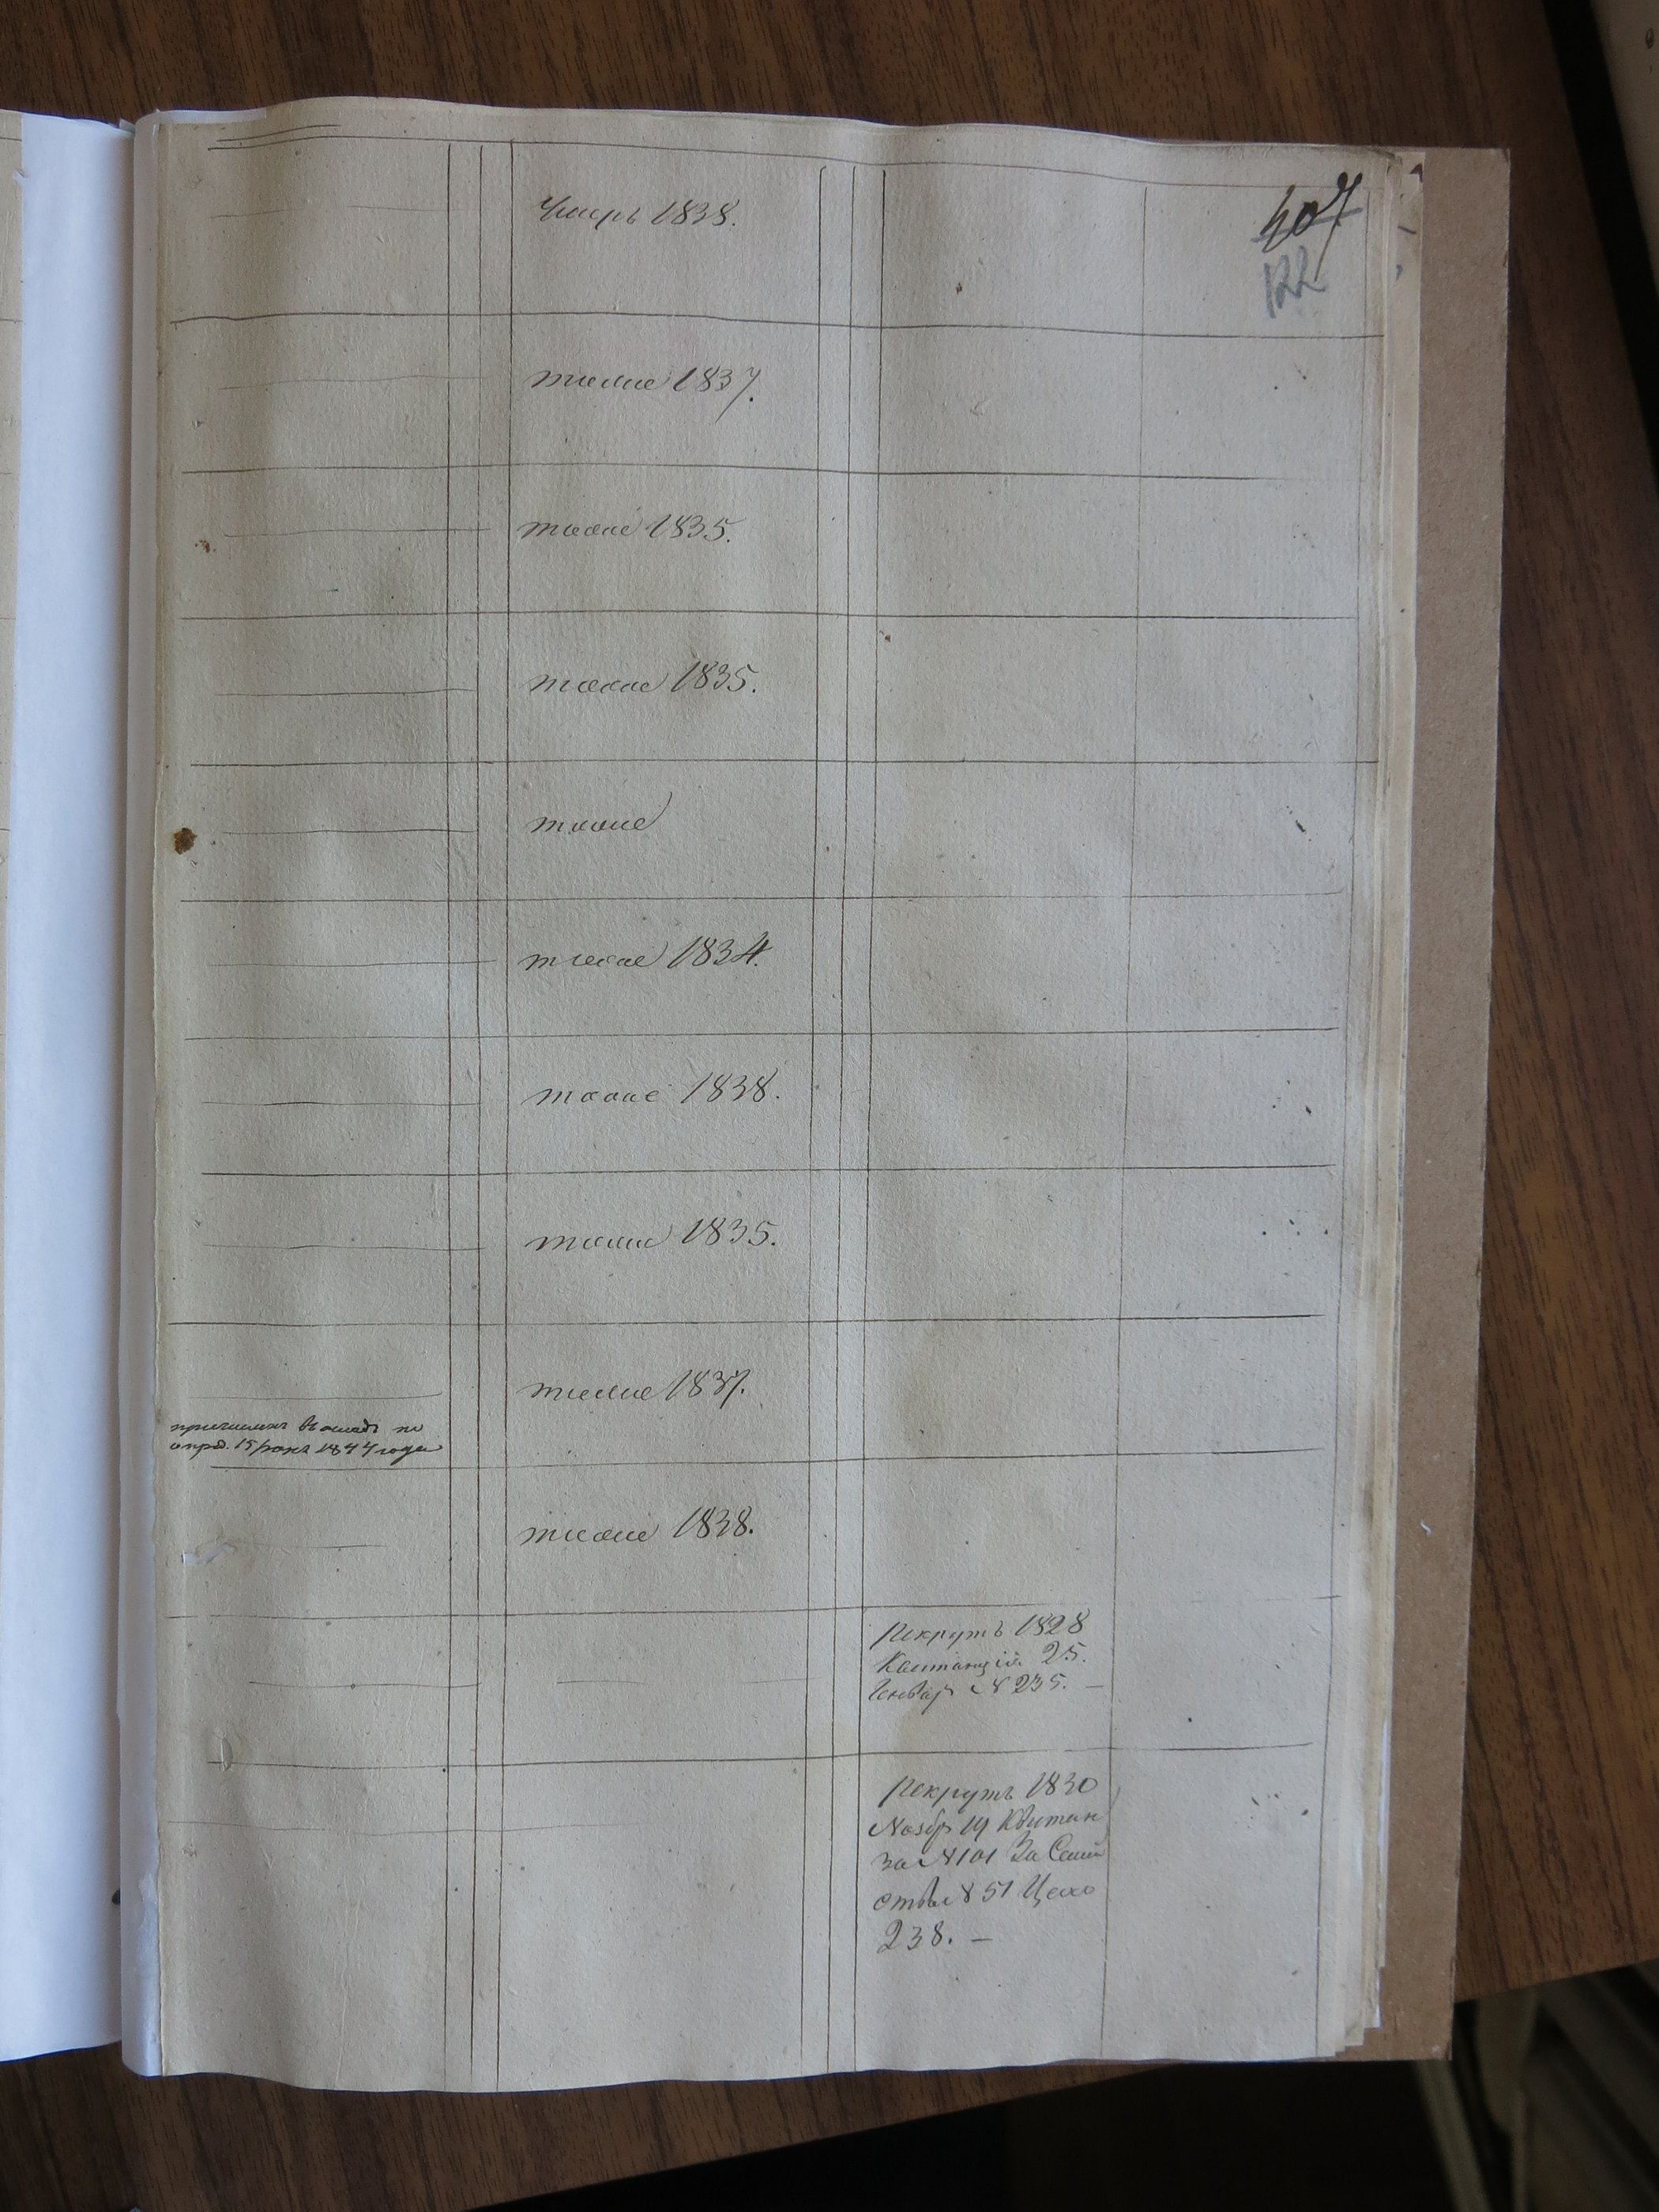 407
122
Умеръ 1838.
тоже 1837.
тоже 1835.
тоже 1835.
тоже
тоже 1834.
тоже 1838.
тоже 1835.
тоже 1837.
причислен въ окладъ по
опред. 15 1844 года
тоже 1838.
Рекрутъ 1828
Квитанція 25.
Генвар № 235. —
Рекрутъ 1830
Ноябр 19 Квитан
за № 101 За Семей
ство № 51 Цехо
238. —